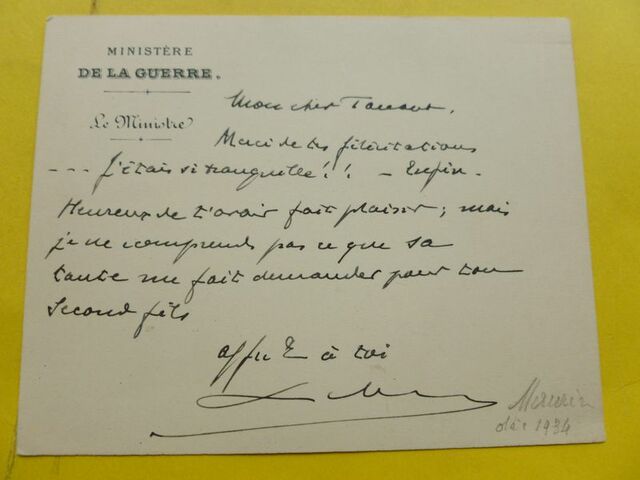 MINISTÈRE
DE LA GUERRE.
Le Ministre
Mon cher
Merci de tes félicitations
--- j'étais si tranquille!! - Enfin -
Heureux de t'avoir fait plaisir; mais
je ne comprends pas ce que sa
tante me fait demander pour ton
second fils
à toi
déc 1934